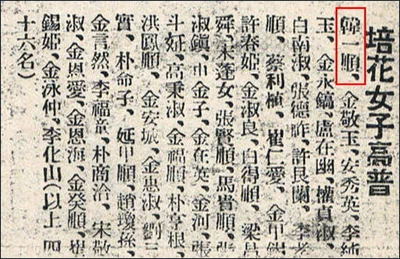 培花女子高普
韓一順、金敬玉、安秀英、李純
玉、金永鎬、盧在幽、權貞淑、
白南淑、張德昨、許艮蘭、李孝
順、蔡利植、崔仁愛、金甲錫、
許春姬、金淑良、白得順、梁昌
舜、朱蓬女、張賢順、馬貴順、張
淑鎭、申金子、金在英、金河、張
斗妊、高秉淑、金福順、朴亨根、
洪鳳順、金安城、金惠淑、劉三
實、朴命子、延甲順、趙瓊孫、
金言然、李福童、朴商洽、宋敬
淑、金恩愛、金恩海、金癸順、崔
錫姬、金泳仲、李化山(以上 四
十六名)